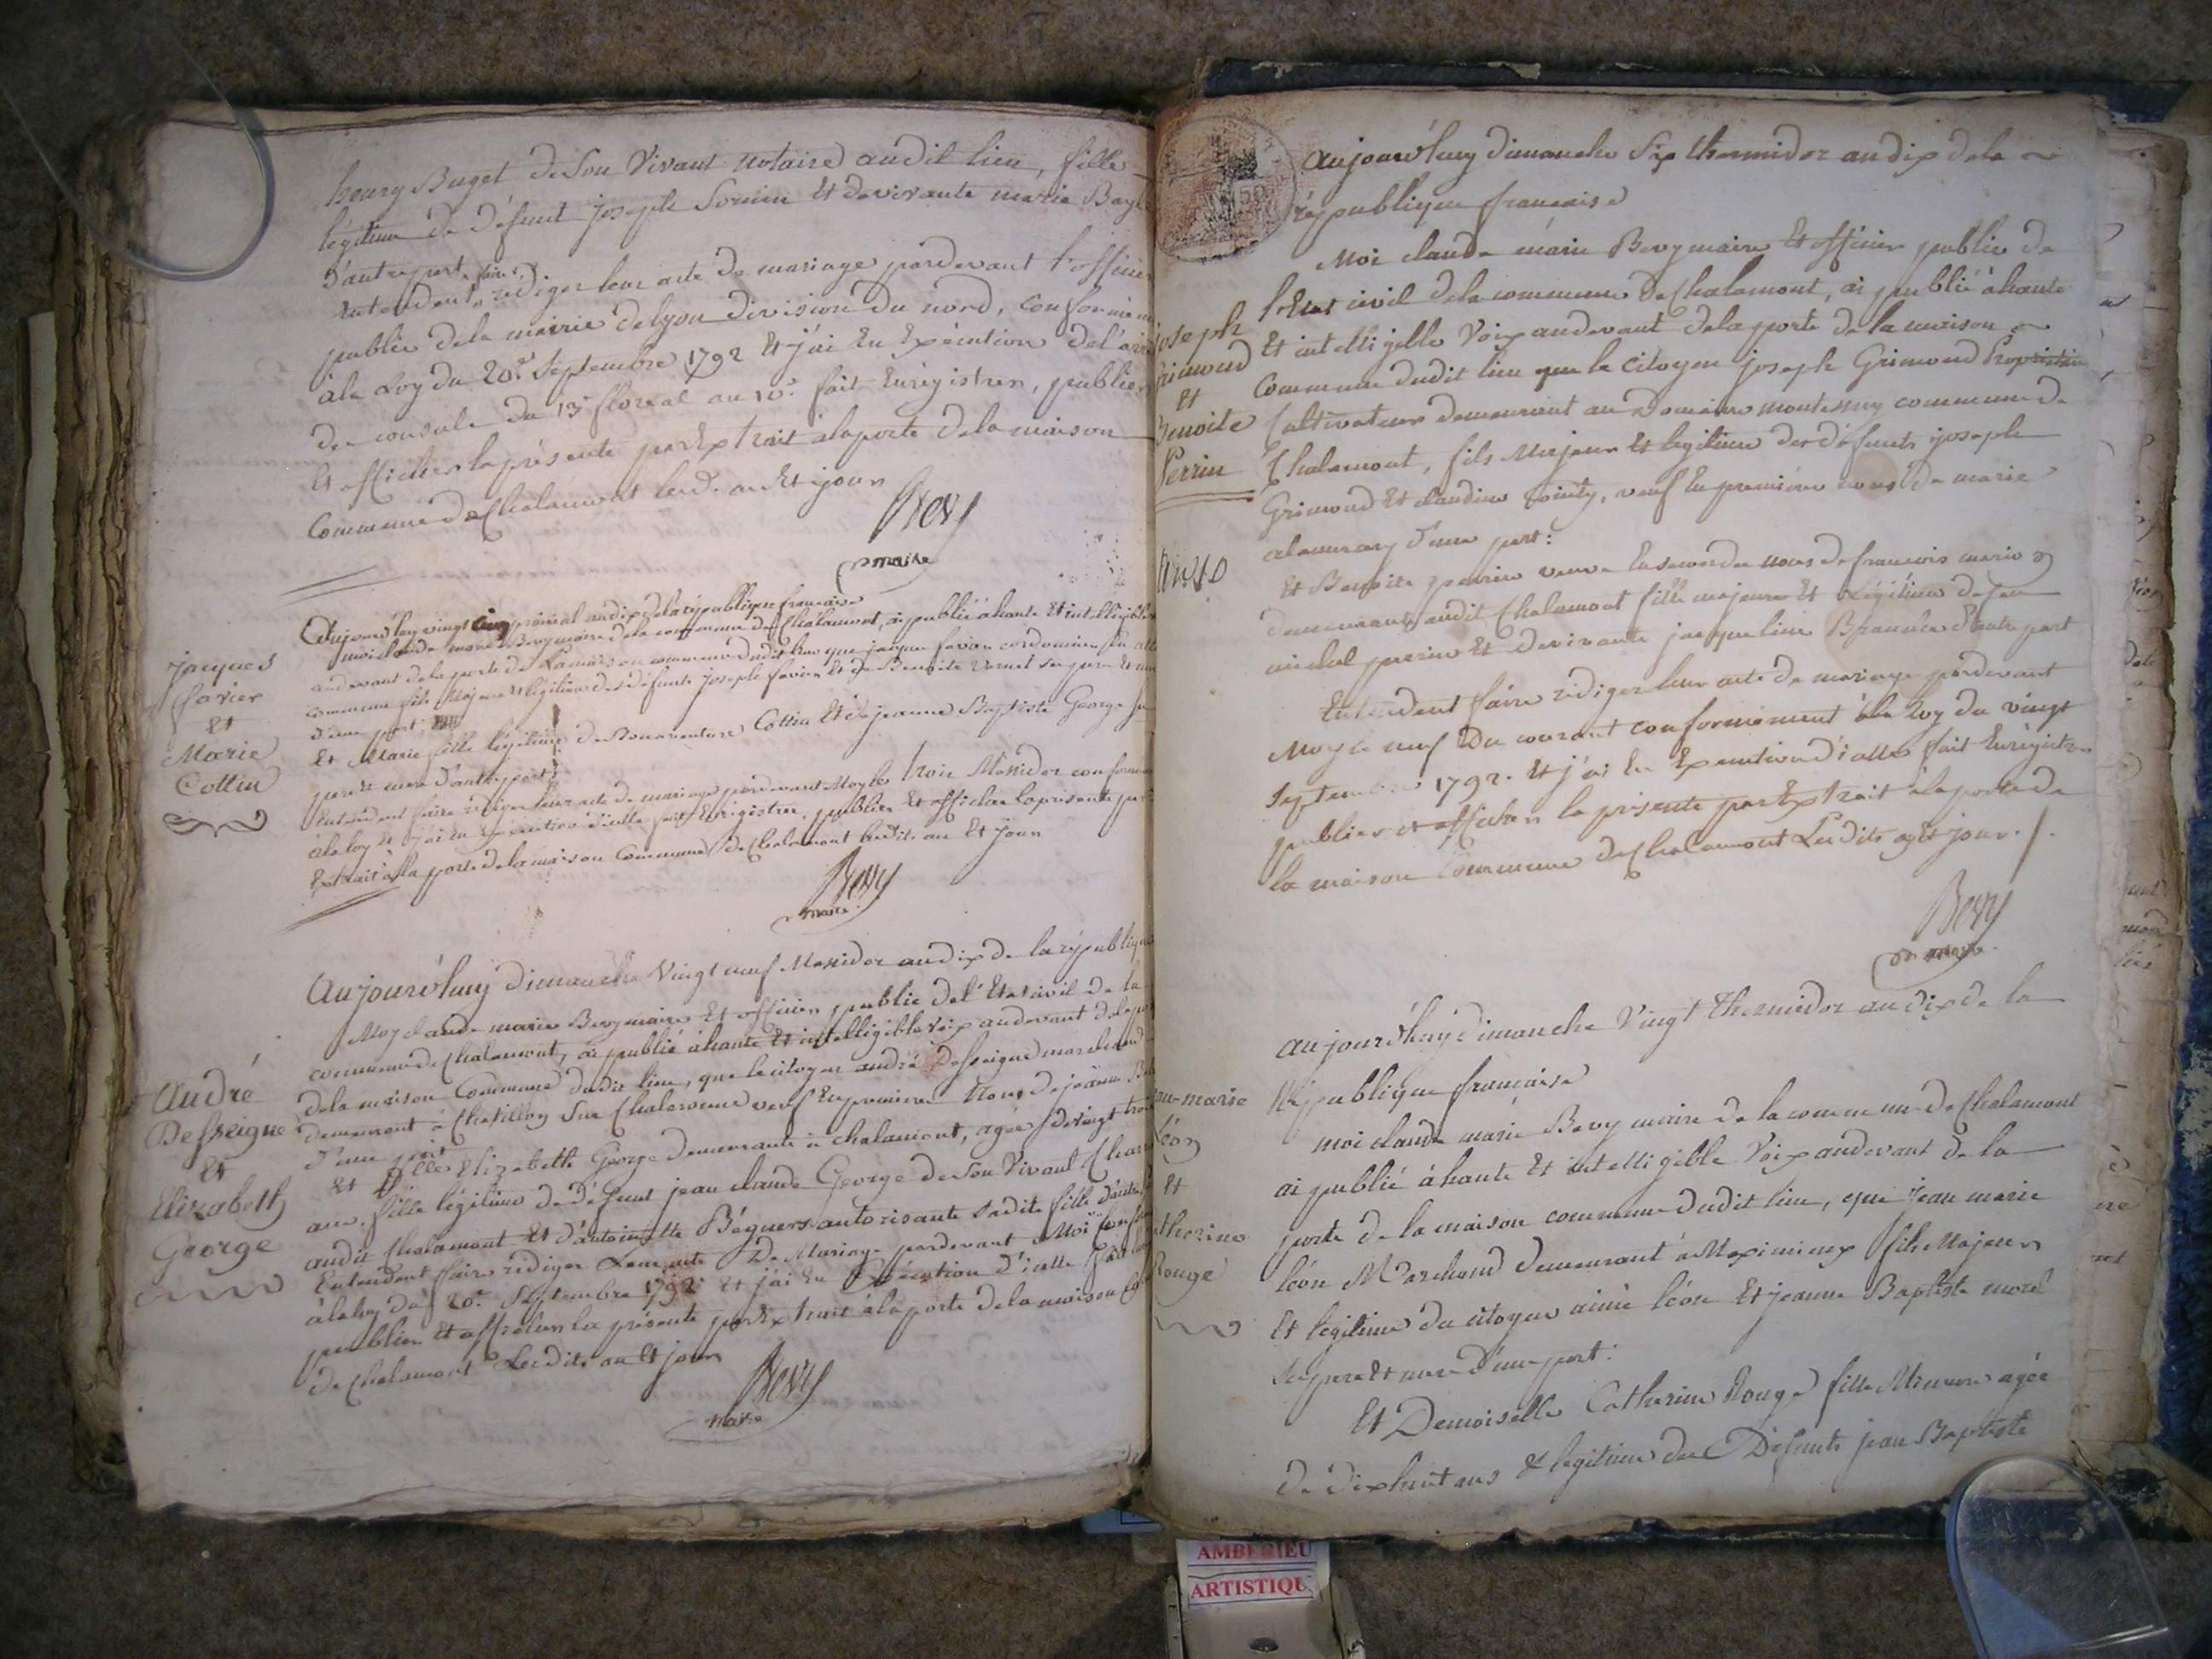 henry Buget de Son Vivant notaire audit lieu, fille
légitime de défunt joseph Sornin Et de vivante marie
d'autre part
Entendent faire rediger leur acte de mariage pardevant l'officier
public de la mairie de Lyon division du nord, conformément
à la Loy du 20e. Septembre 1792 Et j'ai En Execution de
des consuls du 13e floreal an 10e. fait Enrégistrer, publier
Et afficher la présente par Extrait à la porte de la maison
Commune de Chalamont lesd. an Et jour
Bevy
maire
jacques
favier
Et
Marie
Cottin
Aujourd'huy vingt cinq prairial an dix de la république francaise
moi claude marie Bevy maire de la commune de Chalamont, ai publié à haute Et intelligible
audevant de la porte de La maison commune dudit lieu que jacques favier cordonnier
commune fils Majeur Et légitime des défunts joseph favier Et de Benoite Vernet ses pere Et
d'une part;
Et Marie fille légitime de Bonaventure Cottin Et de jeanne Baptiste George
pere Et mere d'autre part;
Entendent faire rediger leur acte de mariage pardevant Moy le trois Messidor
à la loy Et j'ai En Execution d'icelle fait Enrégistrer, publier Et afficher la présente par
Extrait à la porte de la maison Commune de Chalamont lesdits an Et jour
Bevy
maire.
André
Desseigne
Et
Elizabeth
George
Aujourd'huy dimanche Vingt neuf Messidor an dix de la république
Moy claude marie Bevy maire Et officier public de l'Etat civil de la
commune de Chalamont, ai publié à haute Et intelligible voix audevant de la
de la maison Commune dudit lieu, que le citoyen andré desseigne marchand
demeurant à Chatillon Sur Chalaronne veuf En premiere Noces de jeanne
d'une part
Et Elizabeth George demeurante à chalamont, agée de vingt trois
ans, fille légitime de défunt jean claude George de Son Vivant
audit Chalamont Et d'antoinette autorisante sadite fille d'autre
Entendent faire rediger Leur acte De Mariage pardevant Moi
à la loy du 20e. Septembre 1792 Et j'ai En Execution d'icelle fait
publier Et afficher la présente par Extrait à la porte de la maison
de Chalamont Lesdits an Et jour
Bevy
maire
aujourd'huy dimanche Six thermidor an dix de la
république francaise
Moi claude marie Bevy maire Et officier public de
l'Etat civil de la commune de Chalamont, ai publié à haute
Et intelligible Voix audevant de la porte de la maison
Commune dudit lieu que le citoyen joseph Grimond
Cultivateur demeurant au Domaine commune de
Chalamont, fils Majeur Et legitime des défunts joseph
Grimond Et claudine veuf En premiére noces de marie
d'une part:
Et Benoite perrin veuve En secondes noces de francois marie
demeurante audit Chalamont fille majeure Et légitime de feu
michel perrin Et de vivante jacqueline d'autre part
Entendent faire rediger leur acte de mariage pardevant
Moy le neuf du courant conformément à la loy du vingt
Septembre 1792. Et j'ai En Execution d'icelle fait Enrégistrer
publier et afficher la présente par Extrait à la porte de
la maison Commune de Chalamont Lesdits an Et jour./.
Bevy
maire.
joseph
Grimond
Et
Benoite
Perrin
aujourd'huy dimanche Vingt thermidor an dix de la
République francaise
moi claude marie Bevy maire de la commune de Chalamont
ai publié à haute Et intelligible Voix audevant de la
porte de la maison commune dudit lieu, que jean marie
léon Marchand demeurant à Meximieux fils Majeur
Et legitime du citoyen aimé léon Et jeanne Baptiste morel
ses pere Et mere d'une part:
Et Demoiselle Catherine Rouge fille Mineure agée
de dix huit ans & legitime des Defunts jean Baptiste
marie
léon
Et
Rouge
50
AMBERIEU
ARTISTIQU